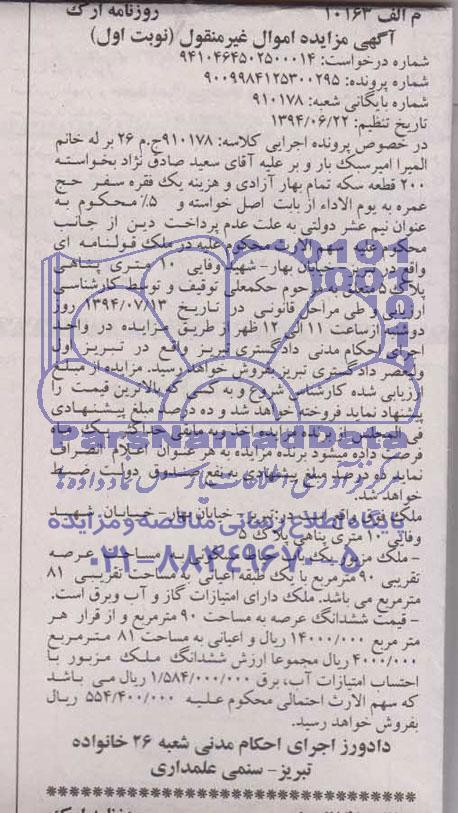 م الف ۱۰۱۶۳ روزنامه ارک
آگهی مزایده اموال غیرمنقول (نوبت اول)
شماره درخواست: ۹۴۱۰۴۶۴۵۰۲۵۰۰۰۱۴
شماره پرونده: ۹۰۰۹۹۸۴۱۲۵۳۰۰۲۹۵
شماره بایگانی شعبه: ۹۱۰۱۷۸
تاریخ تنظیم: ۱۳۹۴/۰۶/۲۲
در خصوص پرونده اجرایی کلاسه: ۹۱۰۱۷۸ج.م ۲۶ بر له خانم
المیرا امیر سبک بار و بر علیه آقای سعید صادق نژاد بخواسته
۲۰۰ قطعه سکه تمام بهار آزادی و هزینه یک فقره سفر حج
عمره به یوم الاداء از بابت اصل خواسته و ۵٪ محکوم به
عنوان نیم عشر دولتی به علت عدم پرداخت دین از جانب
محکوم علیه سهم الارث محکوم علیه در ملک قولنامه ای
واقع در تبریز- خیابان بهار- شهید وفایی ۱۰ متری پناهی
پلاک ۵ متعلق به مرحوم حکمعلی توقیف و توسط کارشناسی
ارزیابی و طی مراحل قانونی در تاریخ ۱۳۹۴/۰۷/۱۳ روز
دوشنبه از ساعت ۱۱ الی ۱۲ ظهر از طریق مزایده در واحد
اجرای احکام مدنی دادگستری تبریز واقع در تبریز اول
ولیعصر دادگستری تبریز بفروش خواهد رسید. مزایده از مبلغ
ارزیابی شده کارشناس شروع و به کسی که بالاترین قیمت را
پیشنهاد نماید فروخته خواهد شد و ده درصد مبلغ پیشنهادی
فی المجلس از برنده مزایده اخذ و به مابقی حداکثر یک ماه
فرصت داده میشود برنده مزایده به هر عنوان اعلام انصراف
نماید ده درصد مبلغ پیشنهادی به نفع صندوق دولت ضبط
خواهد شد.
ملک فوق واقع است در: تبریز- خیابان بهار- خیابان شهید
وفائی ۱۰ متری پناهی پلاک ۵
- ملک مزبور یک باب خانه مسکونی به مساحت عرصه
تقریبی ۹۰ مترمربع با یک طبقه اعیانی به مساحت تقریبی ۸۱
مترمربع می باشد. ملک دارای امتیازات گاز و آب وبرق است.
- قیمت ششدانگ عرصه به مساحت ۹۰ مترمربع و از قرار هر
متر مربع ۱۴۰۰۰/۰۰۰ ریال و اعیانی به مساحت ۸۱ مترمربع
۴۰۰۰/۰۰۰ ریال مجموعا ارزش ششدانگ ملک مزبور با
احتساب امتیازات آب، برق ۱/۵۸۴/۰۰۰/۰۰۰ ریال می باشد
که سهم الارث احتمالی محکوم علیه ۵۵۴/۴۰۰/۰۰۰ ریال
بفروش خواهد رسید.
دادورز اجرای احکام مدنی شعبه ۲۶ خانواده
تبریز- سنمی علمداری
ParsNamadData
پایگاه اطلاع رسانی مناقصه و مزایده
۰۲۱-۸۸۳۴۹۶۷۰-۵